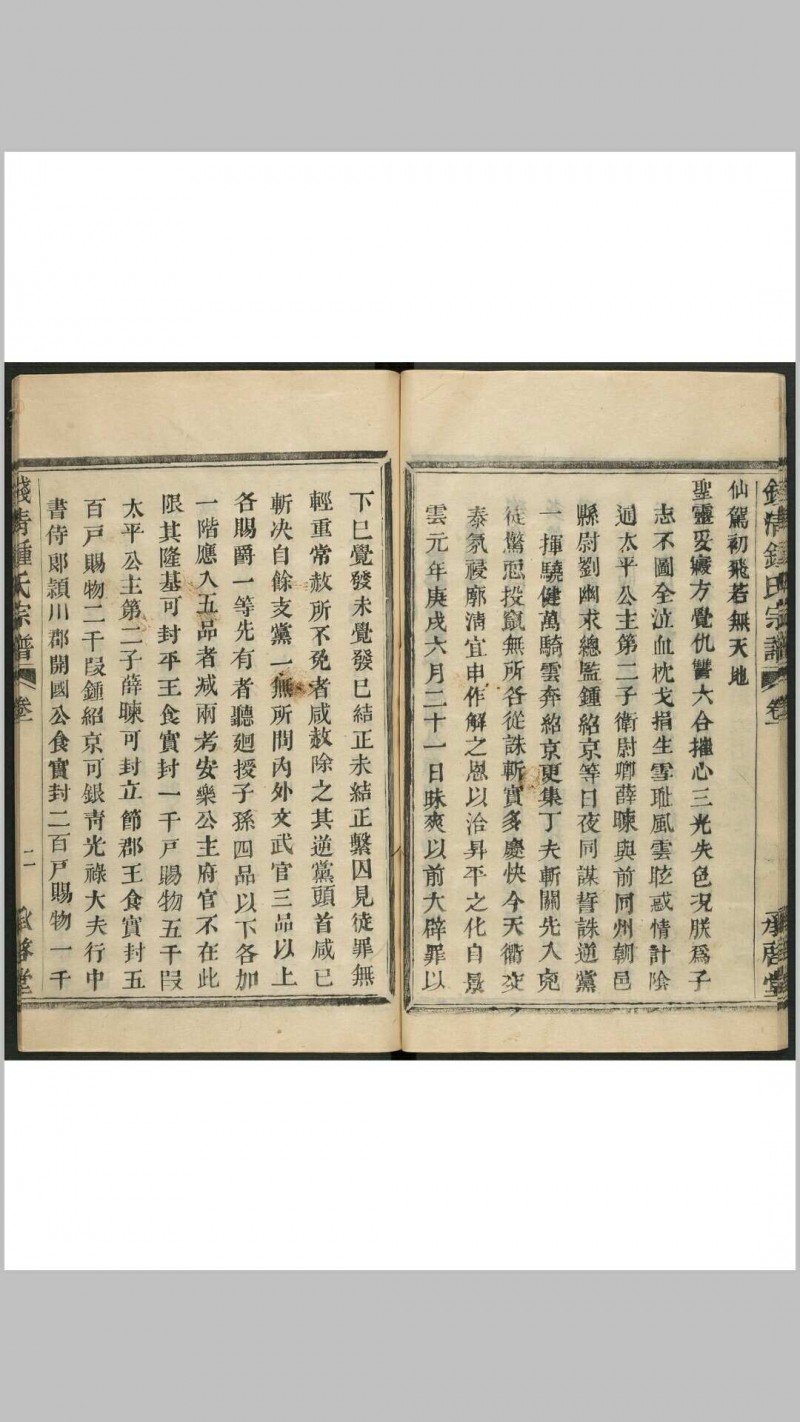 錢清鍾氏宗譜 卷一 承啓堂
仙駕初飛若無天地
聖靈妥寢方覺仇讐六合摧心三光失色況朕為子
志不圖全泣血枕戈捐生雪耻風雲眩惑情計陰
通太平公主第二子衛尉卿薛暕與前同州朝邑
縣尉劉幽求總監鍾紹京等日夜同謀誓誅逆黨
一揮驍健萬騎雲奔紹京更集丁夫斬關先入兇
徒驚忽投竄無所各從誅斬實多慶快今天衢交
泰氛祲廓淸宜申作解之恩以洽昇平之化自景
雲元年庚戌六月二十一日昧爽以前大辟罪以
下已覺發未覺發已結正未結正繫囚見徒罪無
輕重常赦所不免者咸赦除之其逆黨頭首咸已
斬決自餘支黨一無所問內外文武官三品以上
各賜爵一等先有者聽廻授子孫四品以下各加
一階應入五品者减兩考安樂公主府官不在此
限其隆基可封平王食實封一千戸賜物五千段
太平公主第二子薛暕可封立節郡王食實封五
百戸賜物二千段鍾紹京可銀靑光祿大夫行中
書侍郞頴川郡開國公食實封二百戸賜物一千
錢清鍾氏宗譜 卷一 二 承啓堂